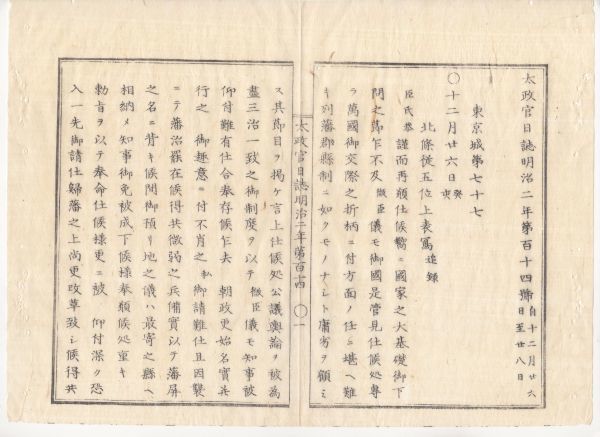 太政官日誌明治二年第百十四號 自十二月廿六日至廿八日
東京城第七十七
〇十二月廿六日 癸亥
北條從五位上表寫 追録
臣氏恭 謹而再願仕候嚮ニ國家之大基礎御下
問之節乍不及 微臣 儀モ御國是管見仕候處專
ラ萬國御交際之折柄ニ付方面ノ任ニ堪ヘ難
キ列藩郡縣制ニ如クモノナシト庸劣ヲ顧ミ
太政官日誌明治二年第百十四 〇一
ス其節目ヲ掲ケ言上仕候処公議輿論ヲ被為
盡三治一致之御制度ヲ以テ 微臣 儀モ知事被
仰付難有仕合奉存候乍去 朝政更始名實共
行之 御趣意ニ付不肖之 私 御請難仕且因襲
ニテ藩治罷在候得共微弱之兵備實以テ藩屏
之名ニ背キ候間御預リ地之儀ハ最寄之縣ヘ
相納メ知事御免被成下候様奉願候処重キ
勅旨ヲ以テ奉命仕候様更ニ被 仰付深ク恐
入一先御請仕歸藩之上尚更改革致シ候得共